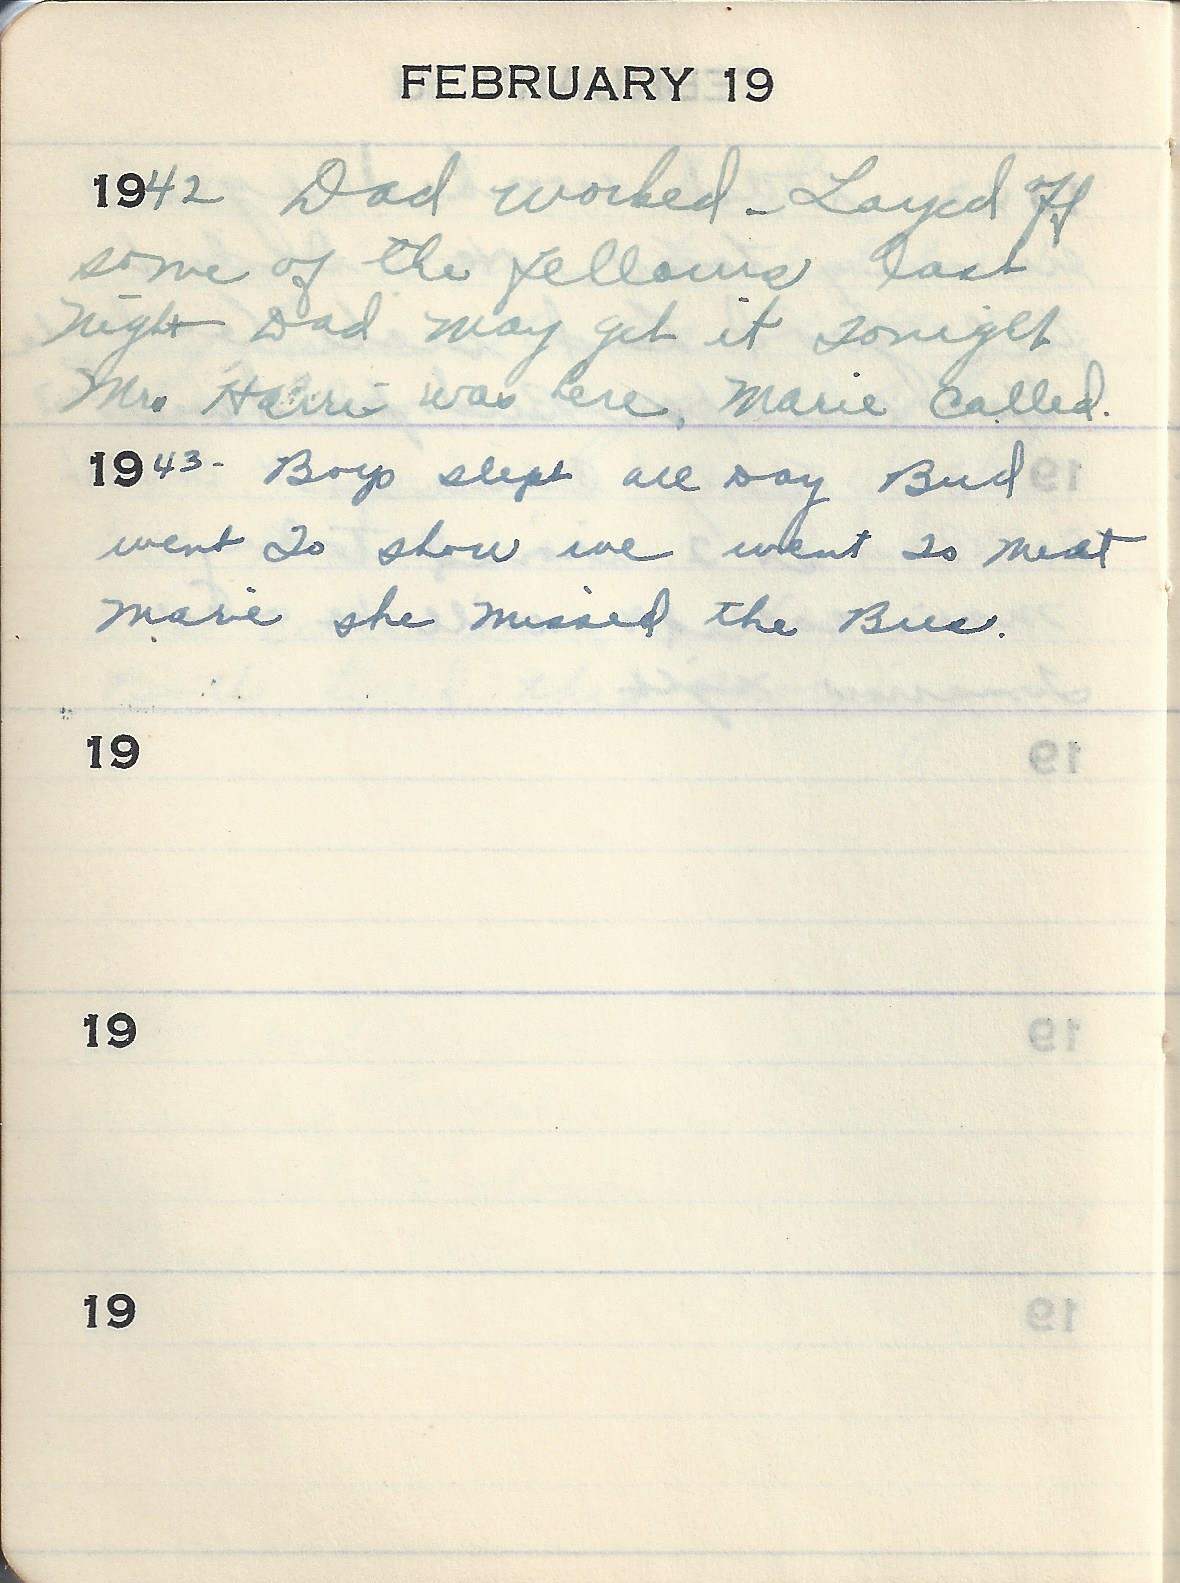 FEBRUARY 19
1942 Dad worked - Layed off
some of the fellows last
night Dad may get it tonight
Mrs Harris was here, Marie called.
1943- Boys slept all Day Bud
went to show we went to meat
Marie she missed the Bus.
19
19
19